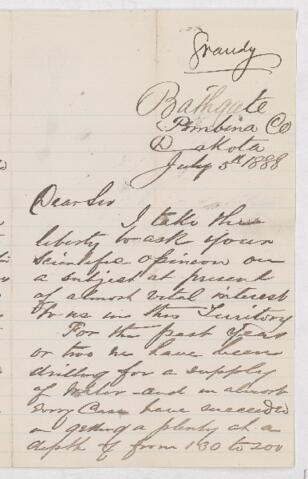 Grandy
Bathgate
Pembina Co
Dakota
July 5th 1888
Dear Sir
I take the
liberty to ask your
scientific opinion on
a subject at present
of almost vital interest
to us in this Territory
For the past year
or two we have been
drilling for a supply
of Water and in almost
every Case have succeeded
in getting a plenty at a
depth of from 130 to 200